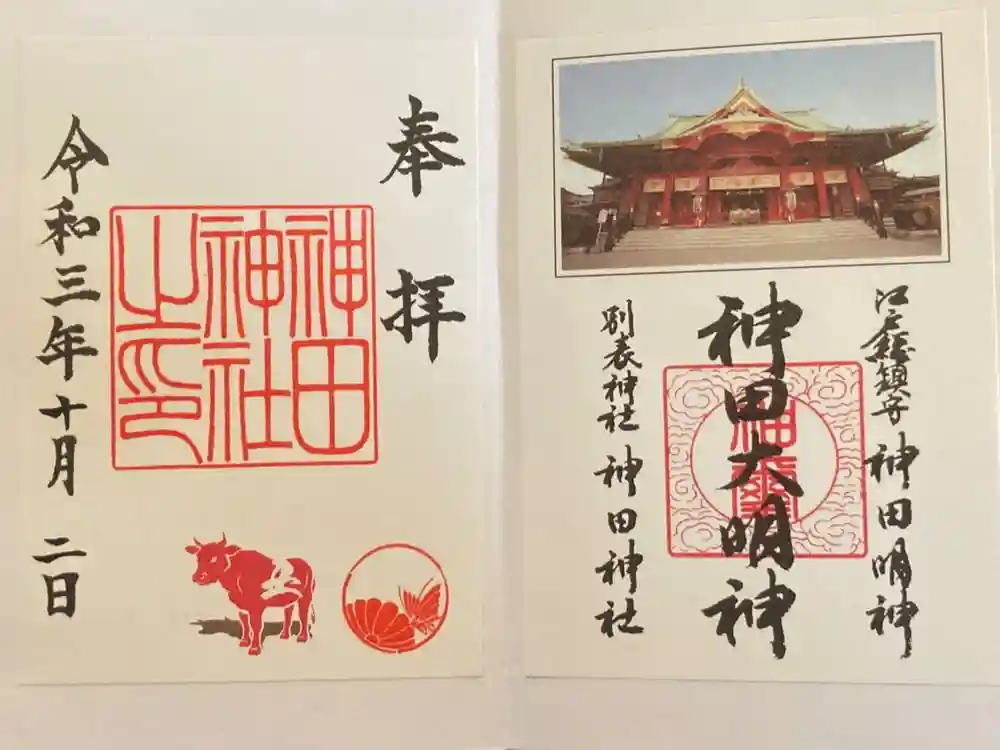 江戸総鎮守 神田明神
神田大明神
別表神社 神田神社
奉拝
神田
神社
之印
令和三年十月二日